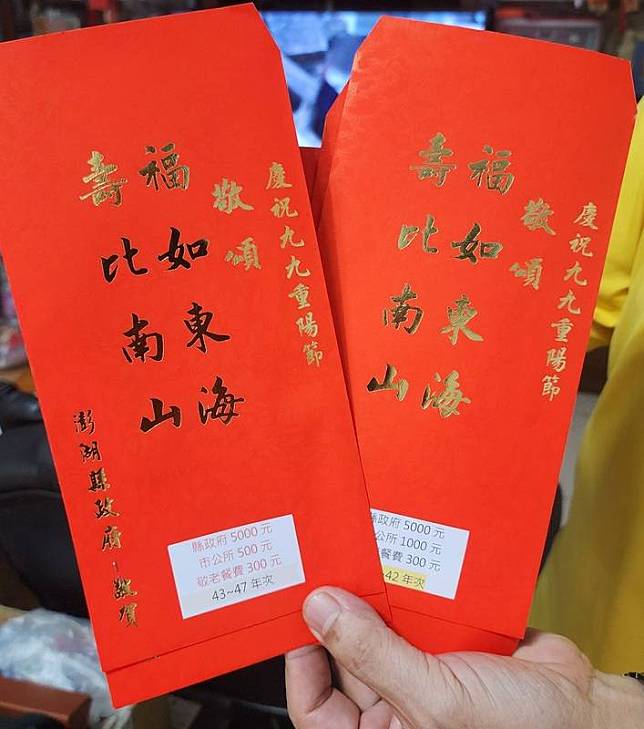 慶祝九九重陽節
敬頌
福如東海
壽比南山
澎湖縣政府敬賀
縣政府 5000 元
市公所 500 元
敬老餐費 300 元
43~47 年次
慶祝九九重陽節
敬頌
福如東海
壽比南山
縣政府 5000 元
公所 1000 元
餐費 300 元
42 年次